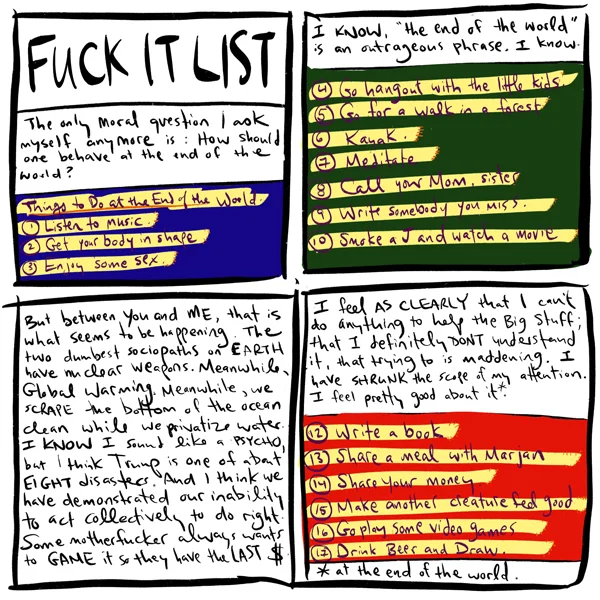 FUCK IT LIST
The only moral question I ask
myself anymore is: How should
one behave at the end of the
world?
Things to Do at the End of the World.
1 Listen to music.
2 Get your body in shape
3 Enjoy some sex.
I KNOW, "the end of the world"
is an outrageous phrase. I know.
4 Go hangout with the little kids.
5 Go for a walk in a forest
6 Kayak.
7 Meditate
8 Call your Mom, sister
9 Write somebody you miss.
10 Smoke a J and watch a movie
But between you and ME, that is
what seems to be happening. The
two dumbest sociopaths on EARTH
have nuclear weapons. Meanwhile,
Global Warming. Meanwhile, we
SCRAPE the bottom of the ocean
clean while we privatize water.
I KNOW I sound like a PSYCHO,
but I think Trump is one of about
EIGHT disasters. And I think we
have demonstrated our inability
to act collectively to do right.
Some motherfucker always wants
to GAME it so they have the LAST $
I feel AS CLEARLY that I can't
do anything to help the Big Stuff;
that I definitely DON'T understand
it, that trying to is maddening. I
have SHRUNK the scope of my attention.
I feel pretty good about it*.
12 Write a book
13 Share a meal with Marjan
14 Share your money
15 Make another creature feel good
16 Go play some video games
17 Drink Beer and Draw.
* at the end of the world.